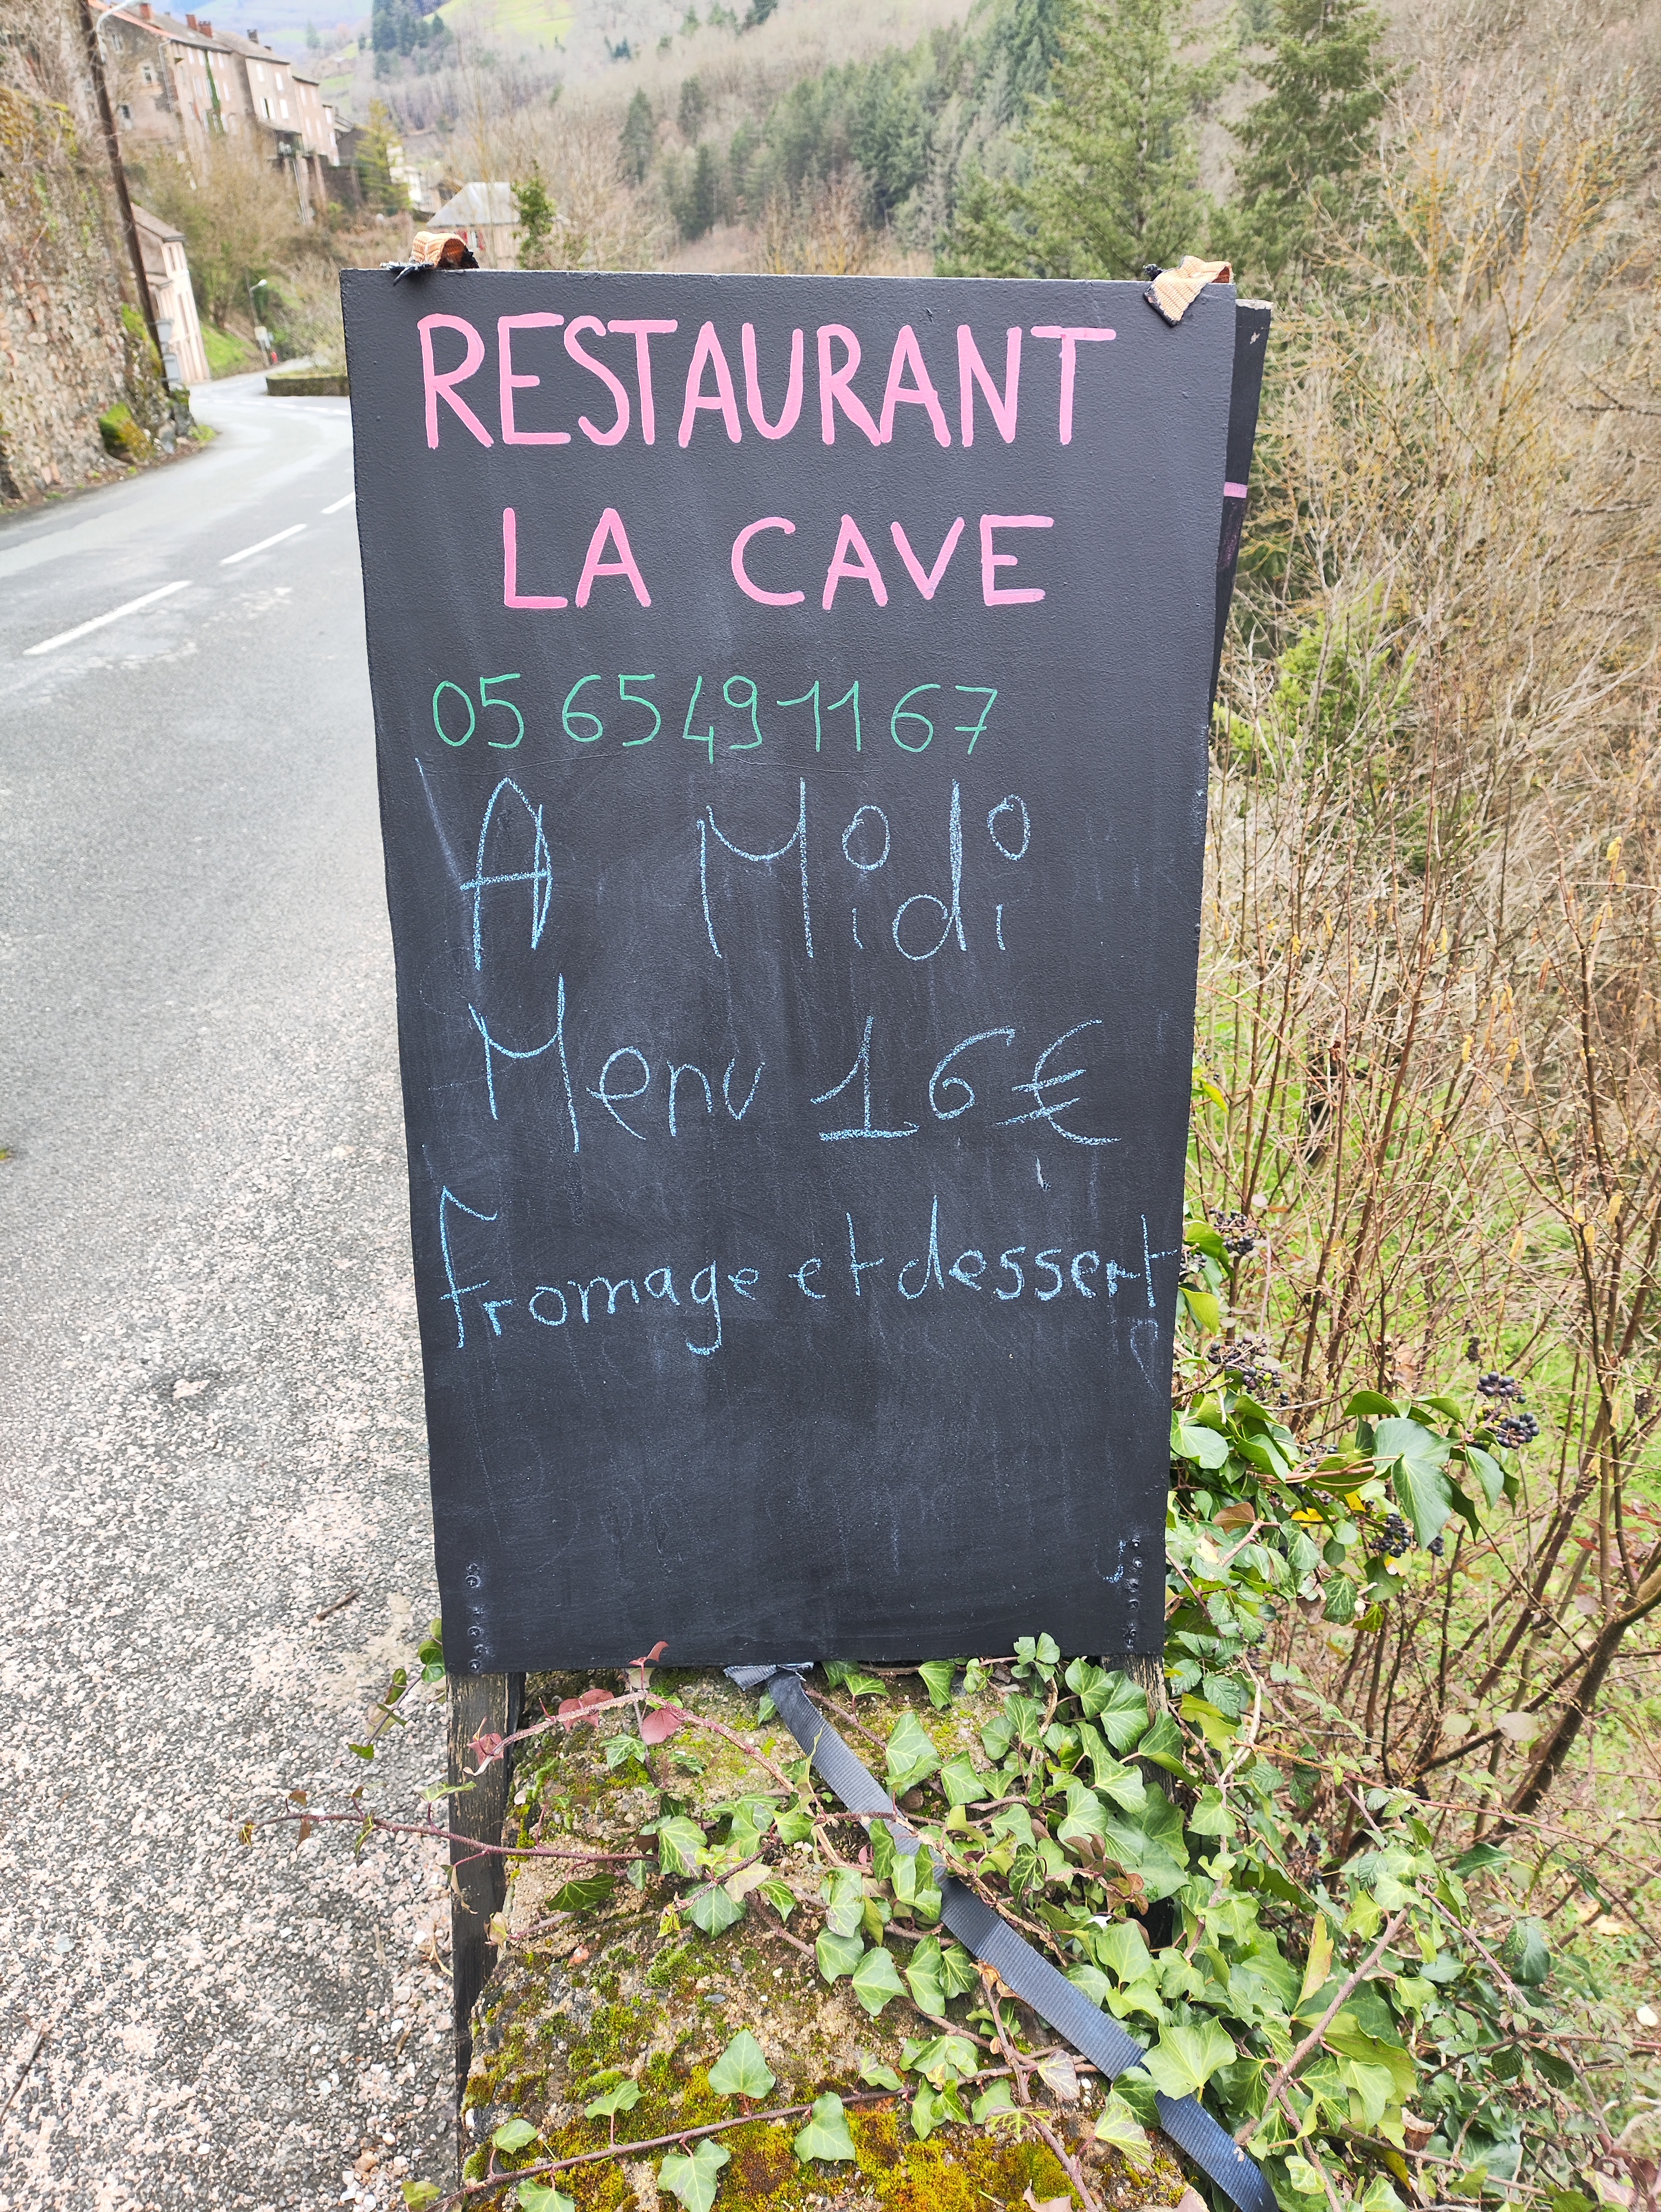 RESTAURANT
LA CAVE
05 65 49 11 67
A Midi
Menu 16€
fromage et dessert